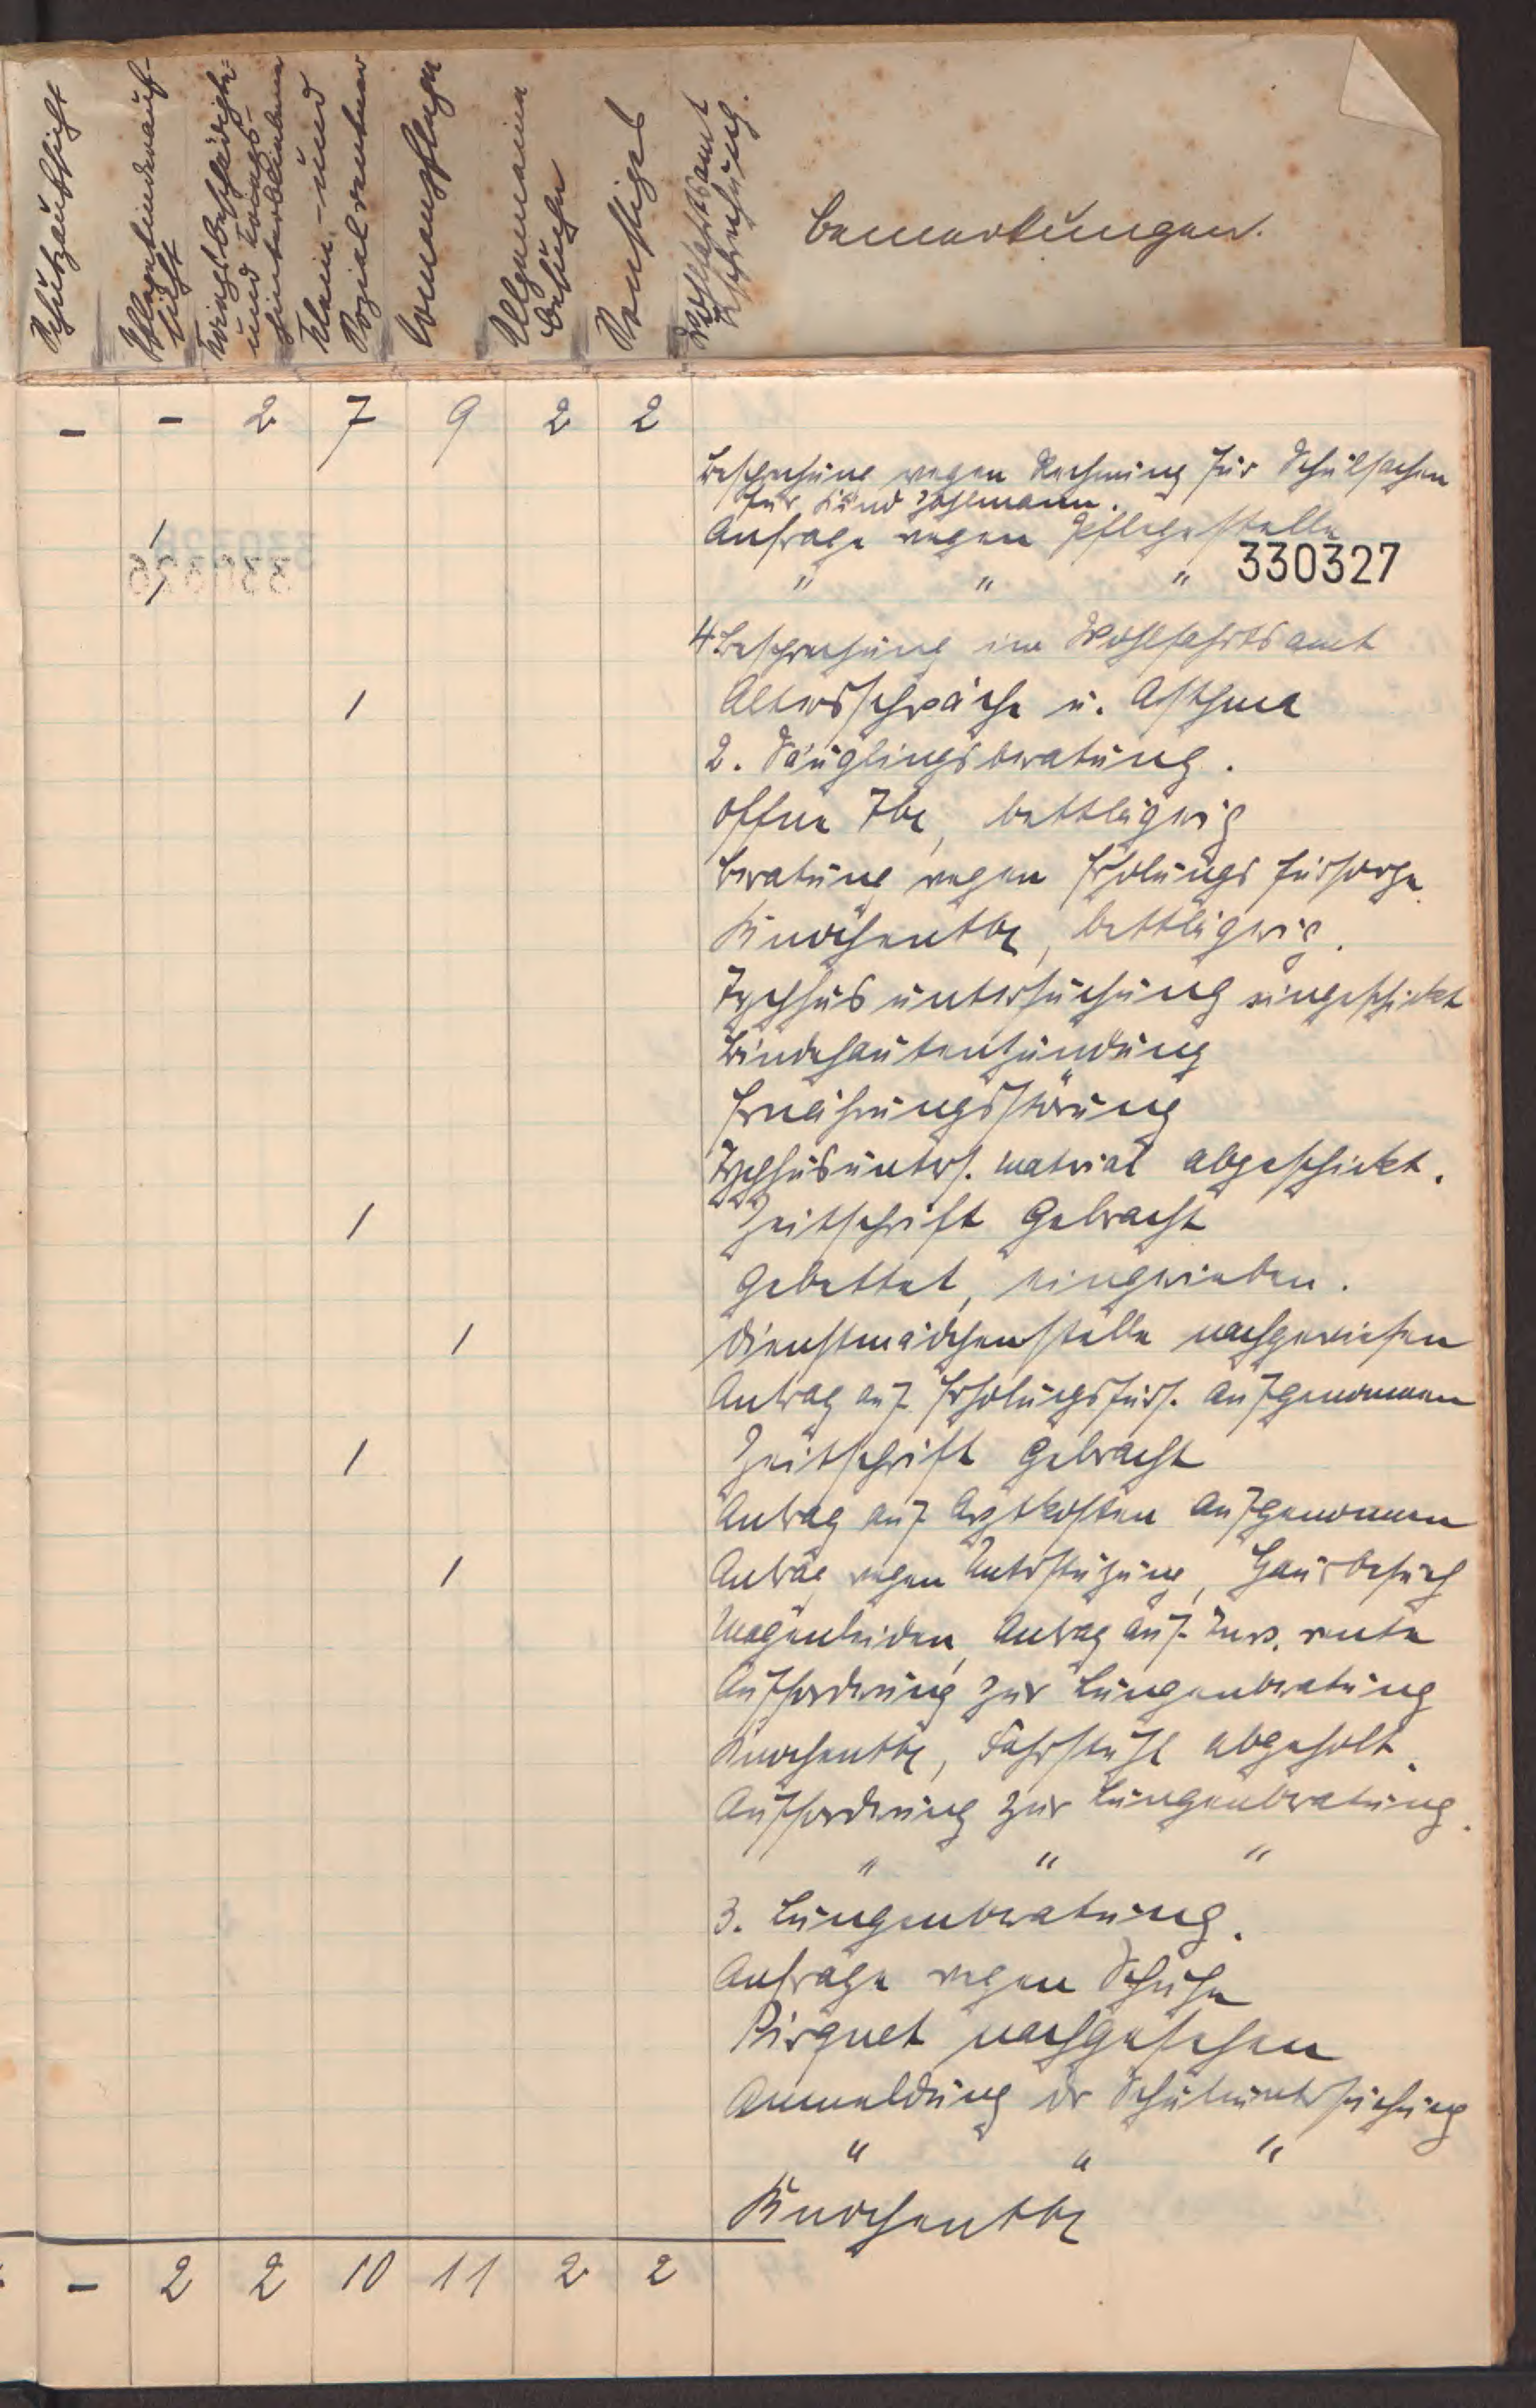 Schutzaufsicht
Pflegekinderauf-
sicht
Kriegsbeschädigte
und Kriegs-
hinterbliebene
Klein- und
Sozialrentner
Armenpflege
Allgemeine
Besuche
Sonstiges
Wohlfahrtsamt
Besprechung.
Bemerkungen.
- - 2 7 9 2 2
Besprechung wegen Rechnung für Schulsachen
für Kind
1 Anfrage wegen Pflegestelle
1 " " " 330327
4 Besprechung im Wohlfahrtsamt
1 Altersschwäche u. Asthma
2. Säuglingsberatung.
Offene Tbc, bettlägerig
Beratung wegen Erholungsfürsorge
Knochentbc, bettlägerig.
Typhusuntersuchung eingeschickt
Bindehautentzündung
Ernährungsstörung
Typhusunters. material abgeschickt.
1 Zeitschrift gebracht
Gebettet, eingerieben.
1 Dienstmädchenstelle nachgewiesen
Antrag auf Erholungsfürs. aufgenommen
1 Zeitschrift gebracht
Antrag auf Arztkosten aufgenommen
1 Antrag wegen Unterstützung, Hausbesuch
Magenleiden, Antrag auf Inv. rente
Aufforderung zur Lungenberatung
Knochentbc, Fahrstuhl abgeholt.
Aufforderung zur Lungenberatung.
" " "
3. Lungenberatung.
Anfrage wegen Schuhe
Pirquet nachgesehen
Anmeldung der Schuluntersuchung
" " "
Knochentbc
- 2 2 10 11 2 2